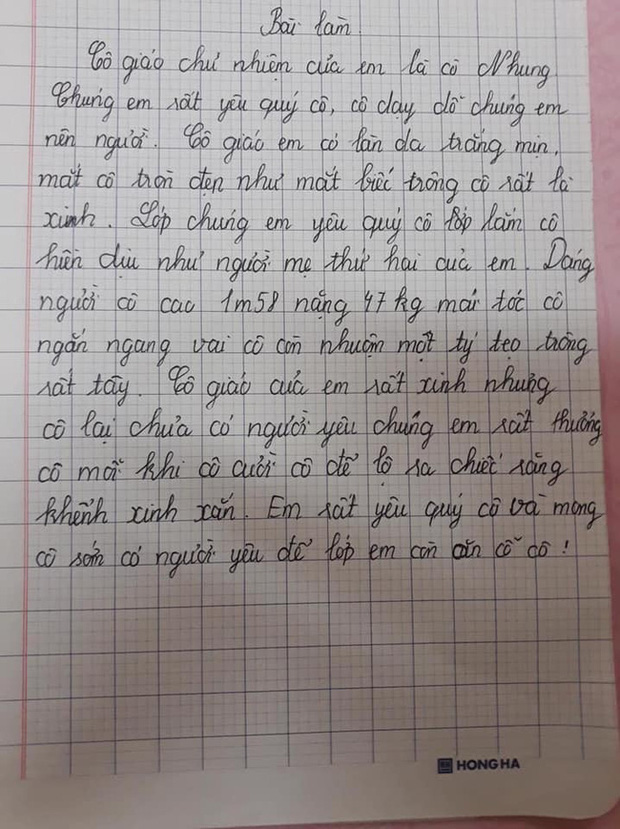 Bài làm
Cô giáo chủ nhiệm của em là cô Nhung
Chúng em rất yêu quý cô, cô dạy dỗ chúng em
nên người. Cô giáo em có làn da trắng mịn,
mắt cô tròn đẹn như mắt biếc trông cô rất là
xinh. Lớp chúng em yêu quý cô lớp lắm cô
hiền dịu như người mẹ thứ hai của em. Dáng
người cô cao 1m58 nặng 47kg mái tóc cô
ngắn ngang vai cô còn nhuộm một tý tẹo trông
rất tây. Cô giáo của em rất xinh nhưng
cô lại chưa có người yêu chúng em rất thương
cô mỗi khi cô cười cô để lộ ra chiếc răng
khểnh xinh xắn. Em rất yêu quý cô và mong
cô sớm có người yêu để lớp em còn ăn cỗ cô!
HONG HA